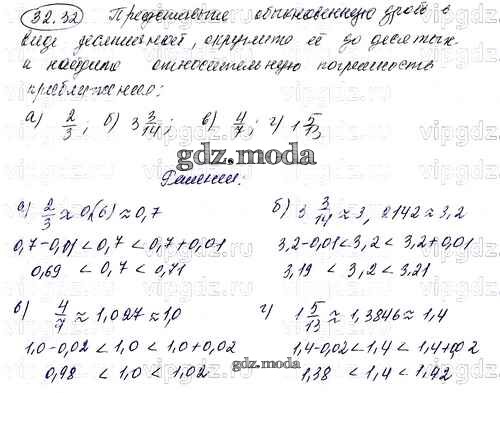 32.32 Представьте обыкновенную дробь в
виде десятичной, округлите её до десятых
и найдите относительную погрешность
приближения:
а) 2/3; б) 3 3/14; в) 4/7; г) 1 5/13
gdz.moda
Решение:
а) 2/3 ≈ 0,(6) ≈ 0,7
0,7-0,01 < 0,7 < 0,7+0,01
0,69 < 0,7 < 0,71
б) 3 3/14 ≈ 3,2142 ≈ 3,2
3,2-0,01 < 3,2 < 3,2+0,01
3,19 < 3,2 < 3,21
в) 4/7 ≈ 1,027 ≈ 1,0
1,0-0,02 < 1,0 < 1,0+0,02
0,98 < 1,0 < 1,02
г) 1 5/13 ≈ 1,3846 ≈ 1,4
1,4-0,02 < 1,4 < 1,4+0,02
1,38 < 1,4 < 1,42
gdz.moda
vipgdz.com